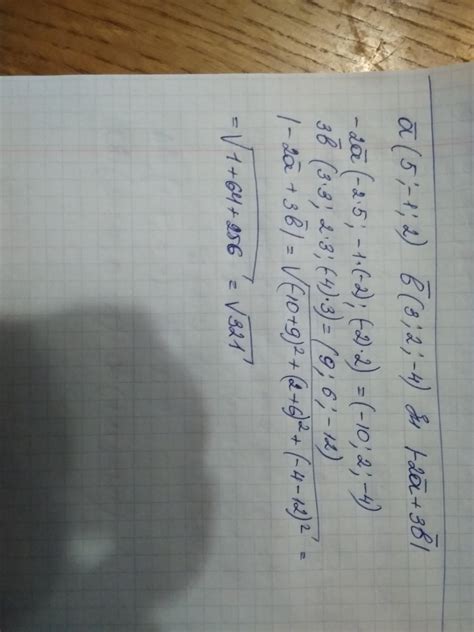 a̅ (5; -1; 2) b̅ (3; 2; -4) |-2a̅ + 3b̅|
-2a̅ (-2·5; -1·(-2); (-2)·2) = (-10; 2; -4)
3b̅ (3·3; 2·3; (-4)·3) = (9; 6; -12)
|-2a̅ + 3b̅| = √(-10+9)² + (2+6)² + (-4-12)² =
= √1+64+256 = √321